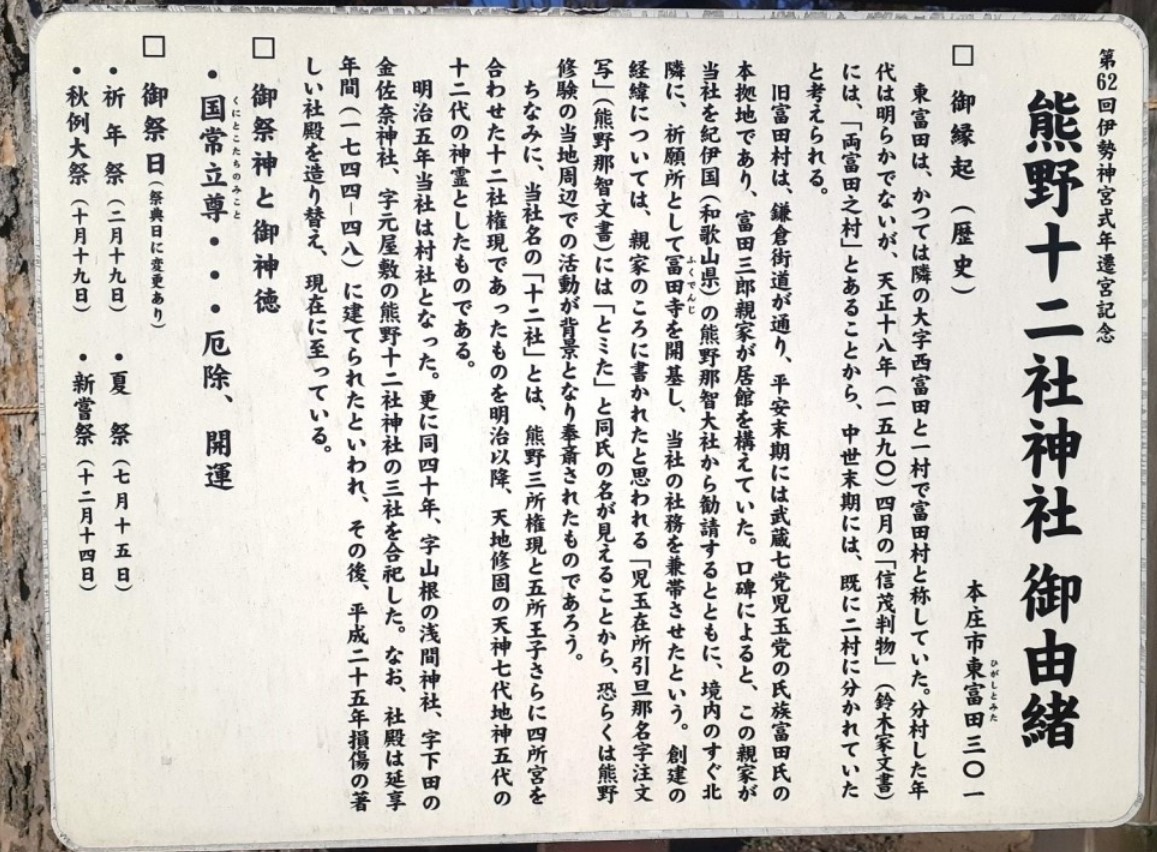 第62回伊勢神宮式年遷宮記念
熊野十二社神社 御由緒
本庄市東富田三〇一
ひがしとみた
□ 御縁起（歴史）
東富田は、かつては隣の大字西富田と一村で富田村と称していた。分村した年
代は明らかでないが、天正十八年（一五九〇）四月の「信茂判物」（鈴木家文書）
には、「両富田之村」とあることから、中世末期には、既に二村に分かれていた
と考えられる。
旧富田村は、鎌倉街道が通り、平安末期には武蔵七党児玉党の氏族富田氏の
本拠地であり、富田三郎親家が居館を構えていた。口碑によると、この親家が
当社を紀伊国（和歌山県）の熊野那智大社から勧請するとともに、境内のすぐ北
隣に、祈願所として冨田寺を開基し、当社の社務を兼帯させたという。創建の
ふくでんじ
経緯については、親家のころに書かれたと思われる「児玉在所引旦那名字注文
写」（熊野那智文書）には「とミた」と同氏の名が見えることから、恐らくは熊野
修験の当地周辺での活動が背景となり奉斎されたものであろう。
ちなみに、当社名の「十二社」とは、熊野三所権現と五所王子さらに四所宮を
合わせた十二社権現であったものを明治以降、天地修固の天神七代地神五代の
十二代の神霊としたものである。
明治五年当社は村社となった。更に同四十年、字山根の浅間神社、字下田の
金佐奈神社、字元屋敷の熊野十二社神社の三社を合祀した。なお、社殿は延享
年間（一七四四－四八）に建てられたといわれ、その後、平成二十五年損傷の著
しい社殿を造り替え、現在に至っている。
□ 御祭神と御神徳
・国常立尊・・・厄除、開運
くにとこたちのみこと
□ 御祭日（祭典日に変更あり）
・祈年祭（二月十九日） ・夏 祭（七月十五日）
・秋例大祭（十月十九日） ・新嘗祭（十二月十四日）